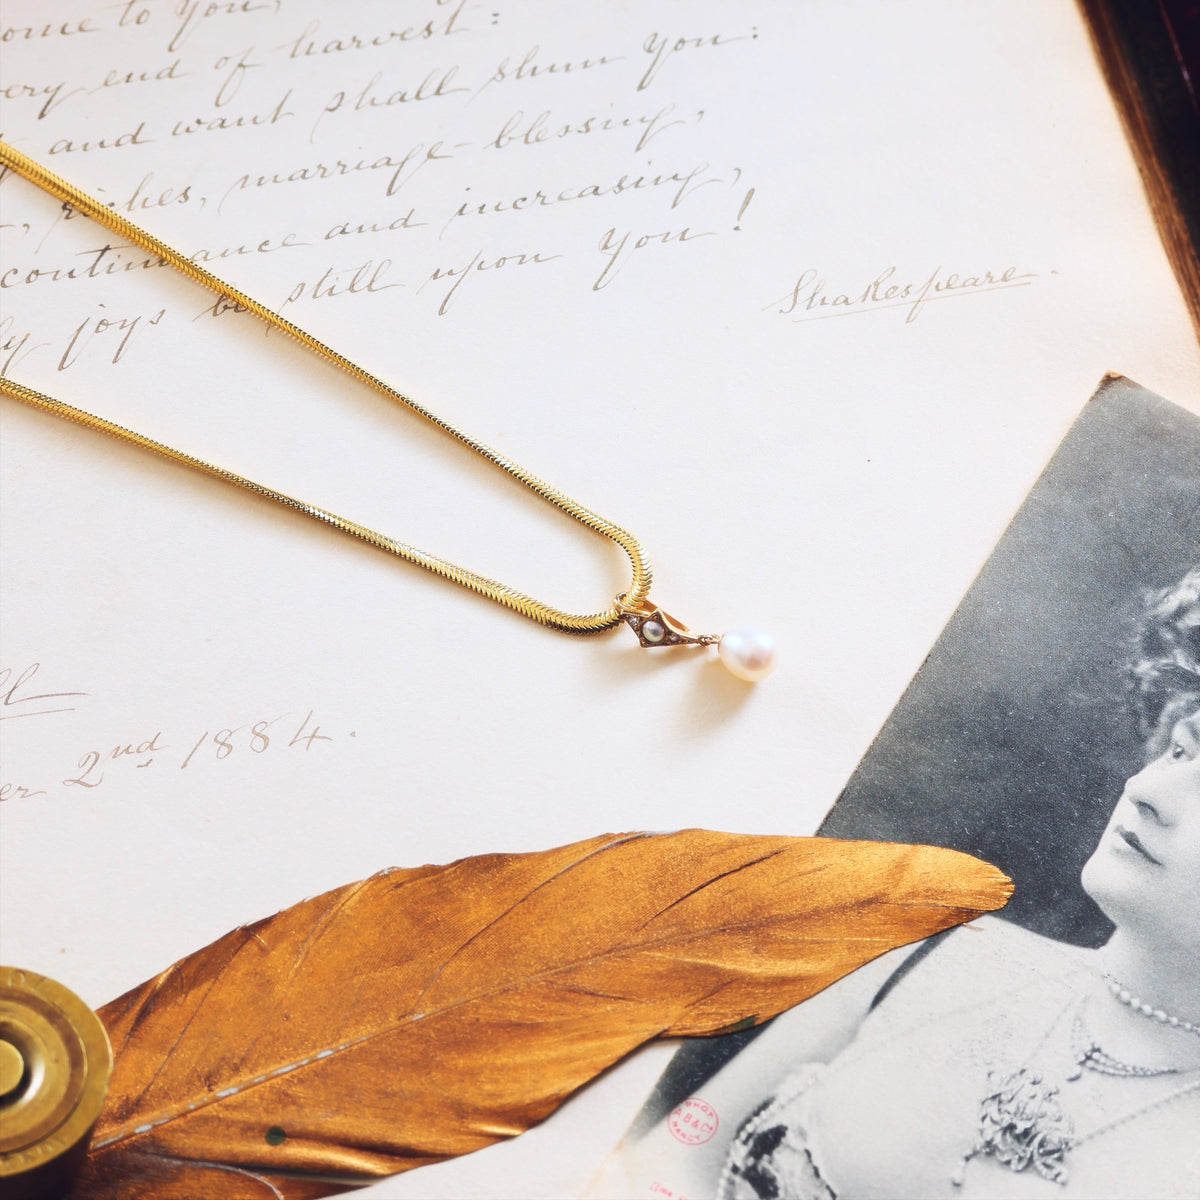 come to you,
very end of harvest:
and want shall shun you:
riches, marriage-blessing,
continuance and increasing,
joys be still upon you!
Shakespeare.
2nd 1884.
A B & Co
NANCY